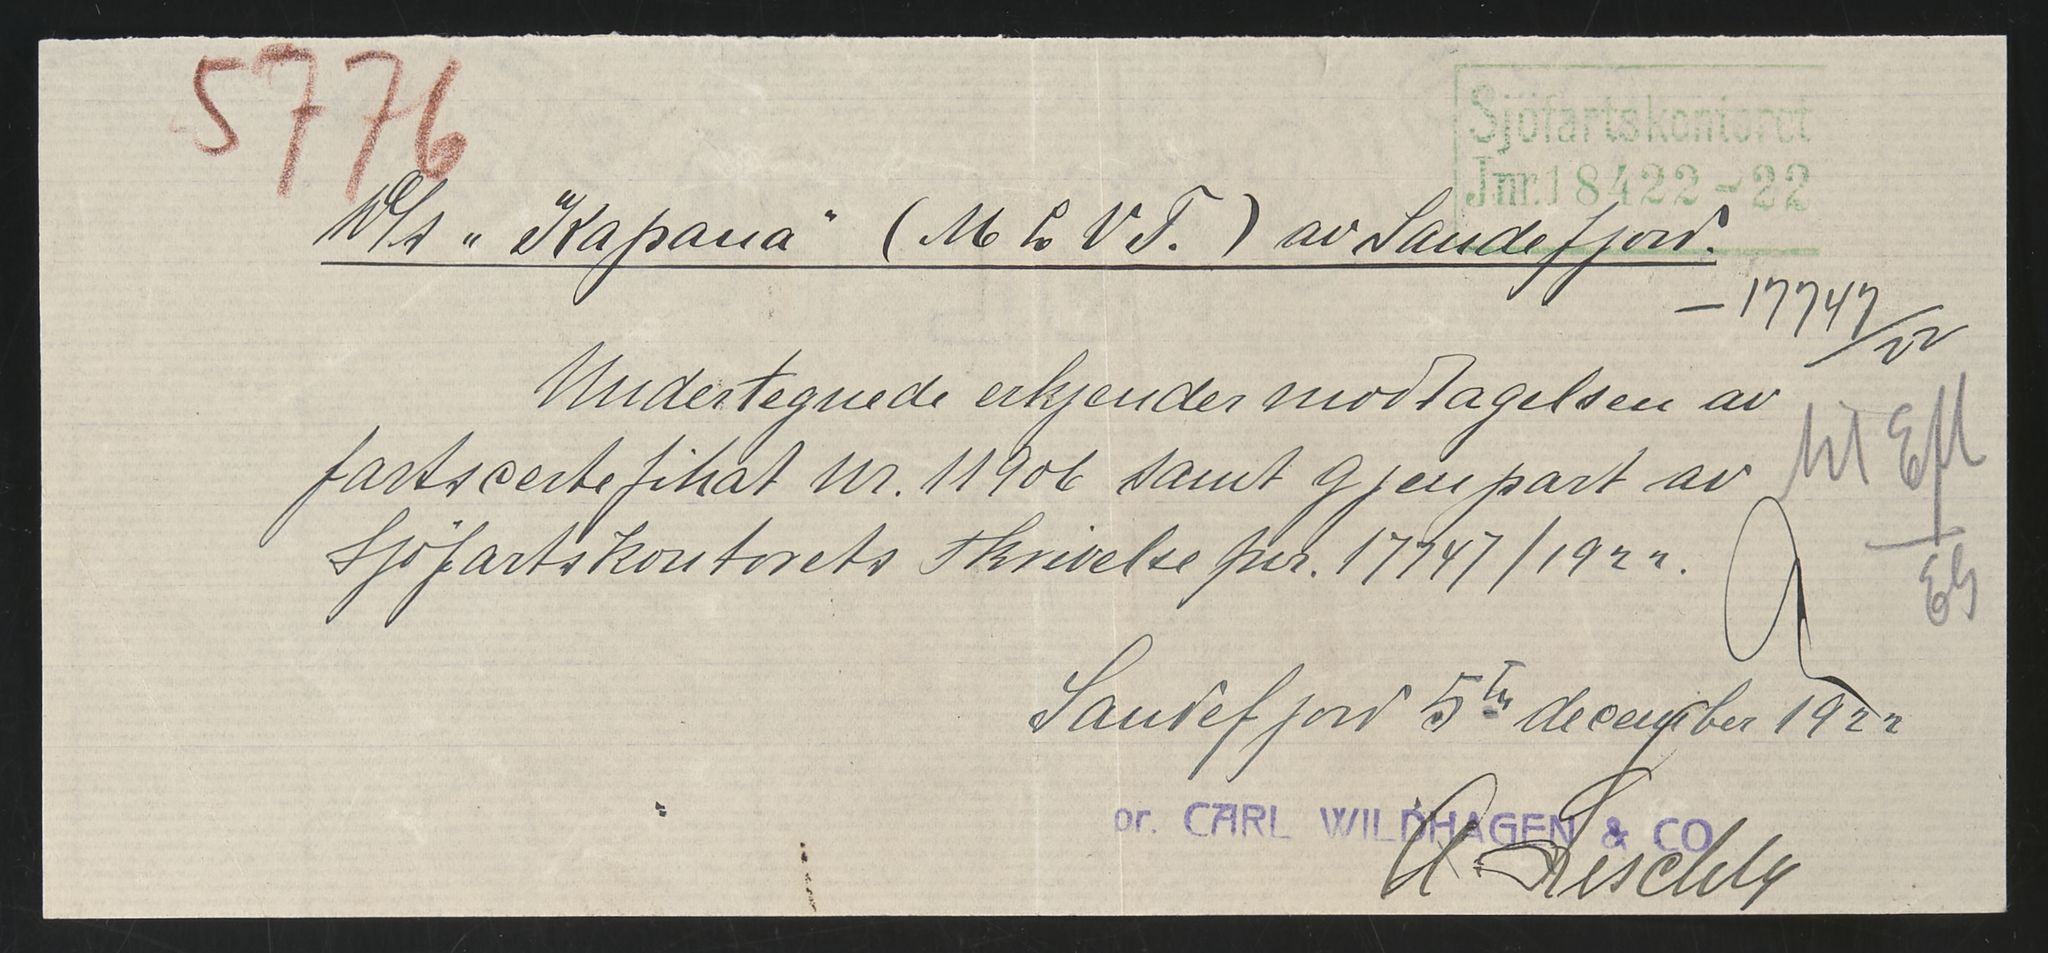 5776
Sjöfartskontoret
Jnr. 18422-22
D/s "Kapana" (M L V F.) av Sandefjord.
- 17747/22
Undertegnede erkjender modtagelsen av
fartscertefikat nr. 11906 samt gjenpart av
Sjöfartskontorets skrivelse jnr. 17747/1922.
Sandefjord 5te december 1922
pr. CARL WILDHAGEN & CO